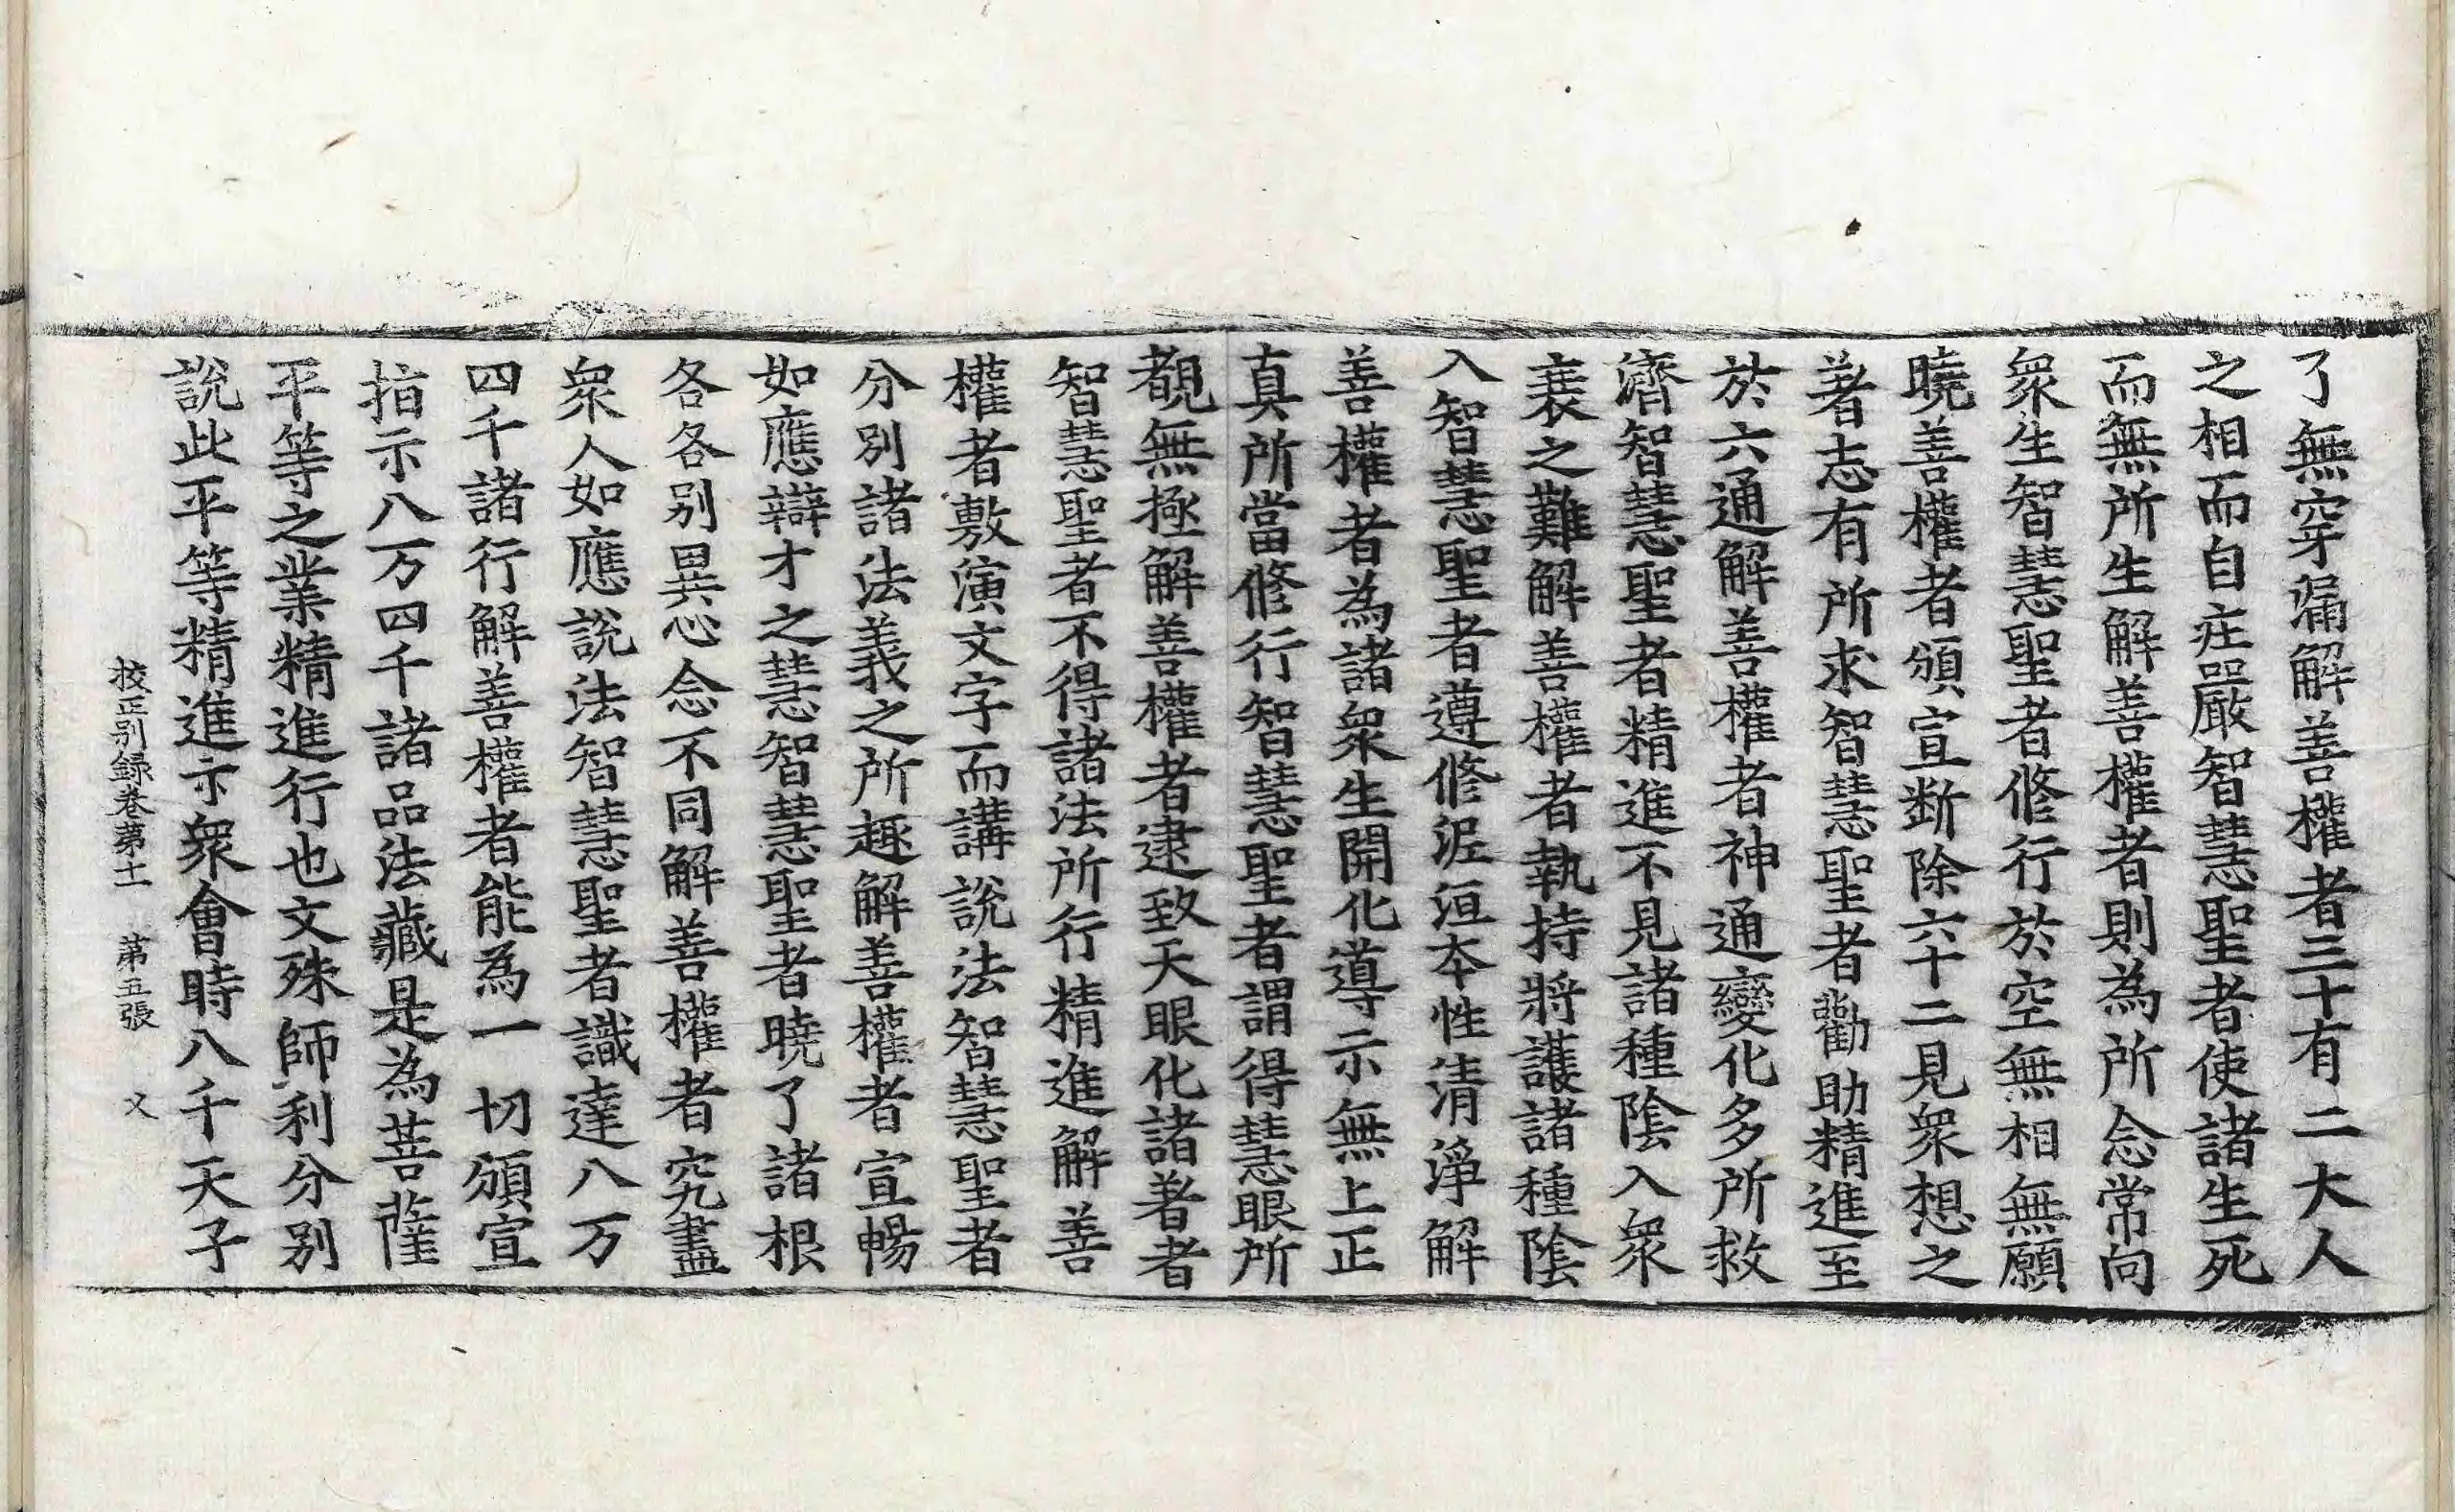 了無穿漏解善權者三十有二大人
之相而自庄嚴智慧聖者使諸生死
而無所生解善權者則為所念常向
衆生智慧聖者修行於空無相無願
曉善權者頒宣断除六十二見衆想之
著志有所求智慧聖者勸助精進至
於六通解善權者神通變化多所救
濟智慧聖者精進不見諸種陰入衆
衰之難解善權者執持將護諸種陰
入智慧聖者遵修泥洹夲性清淨解
善權者為諸衆生開化導示無上正
真所當修行智慧聖者謂得慧眼所
覩無極解善權者逮致天眼化諸著者
智慧聖者不得諸法所行精進解善
權者敷演文字而講說法智慧聖者
分別諸法義之所趣解善權者宣暢
如應辯才之慧智慧聖者曉了諸根
各各别異心念不同解善權者究盡
衆人如應說法智慧聖者識達八万
四千諸行解善權者能為一切頒宣
指示八万四千諸品法藏是為菩薩
平等之業精進行也文殊師利分别
說此平等精進亦衆會時八千天子
校正别録卷第十一 第五張 又